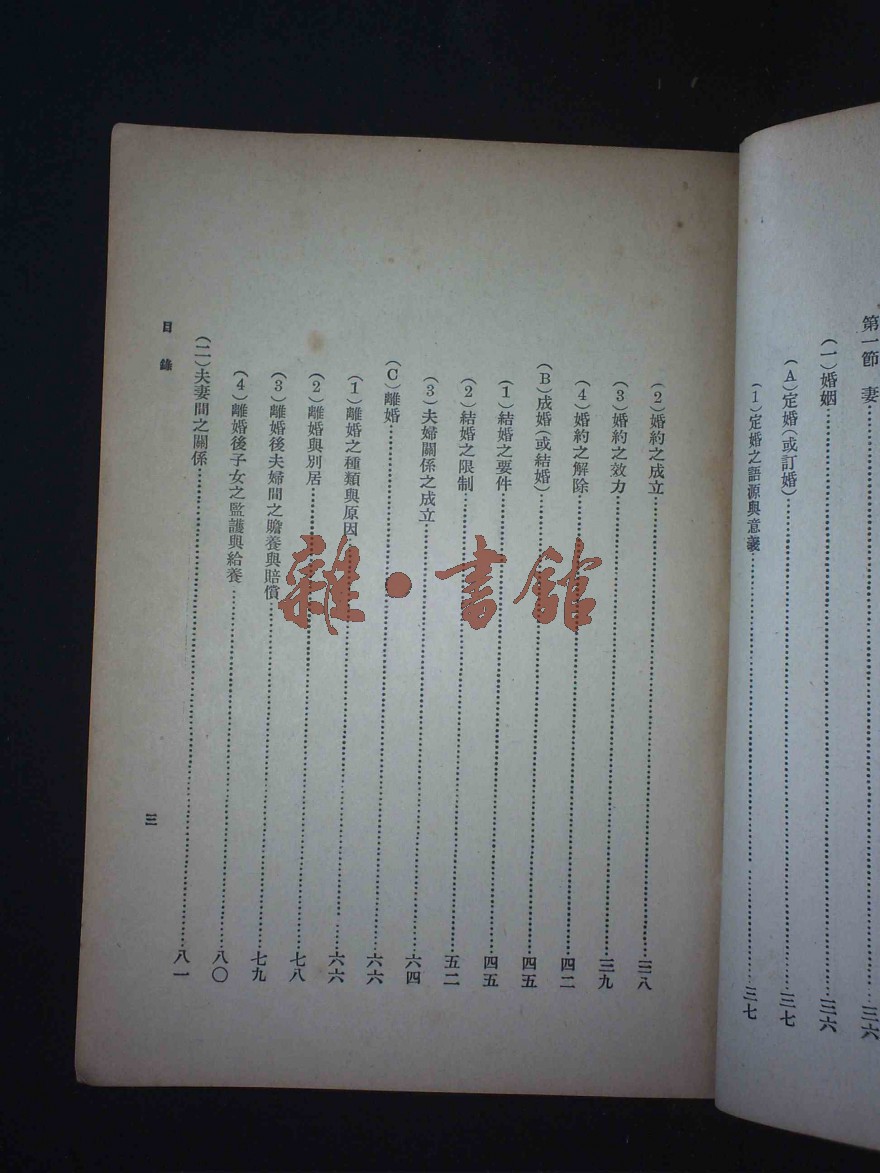 第一節　妻……三六
（一）婚姻……三六
（A）定婚（或訂婚）……三七
（1）定婚之語源與意義……三七
（2）婚約之成立……三八
（3）婚約之效力……三九
（4）婚約之解除……四二
（B）成婚（或結婚）……四五
（1）結婚之要件……四五
（2）結婚之限制……五二
（3）夫婦關係之成立……六四
（C）離婚……六六
（1）離婚之種類與原因……六六
（2）離婚與別居……七八
（3）離婚後夫婦間之贍養與賠償……七九
（4）離婚後子女之監護與給養……八〇
（二）夫妻間之關係……八一
目錄
三
雜·書館